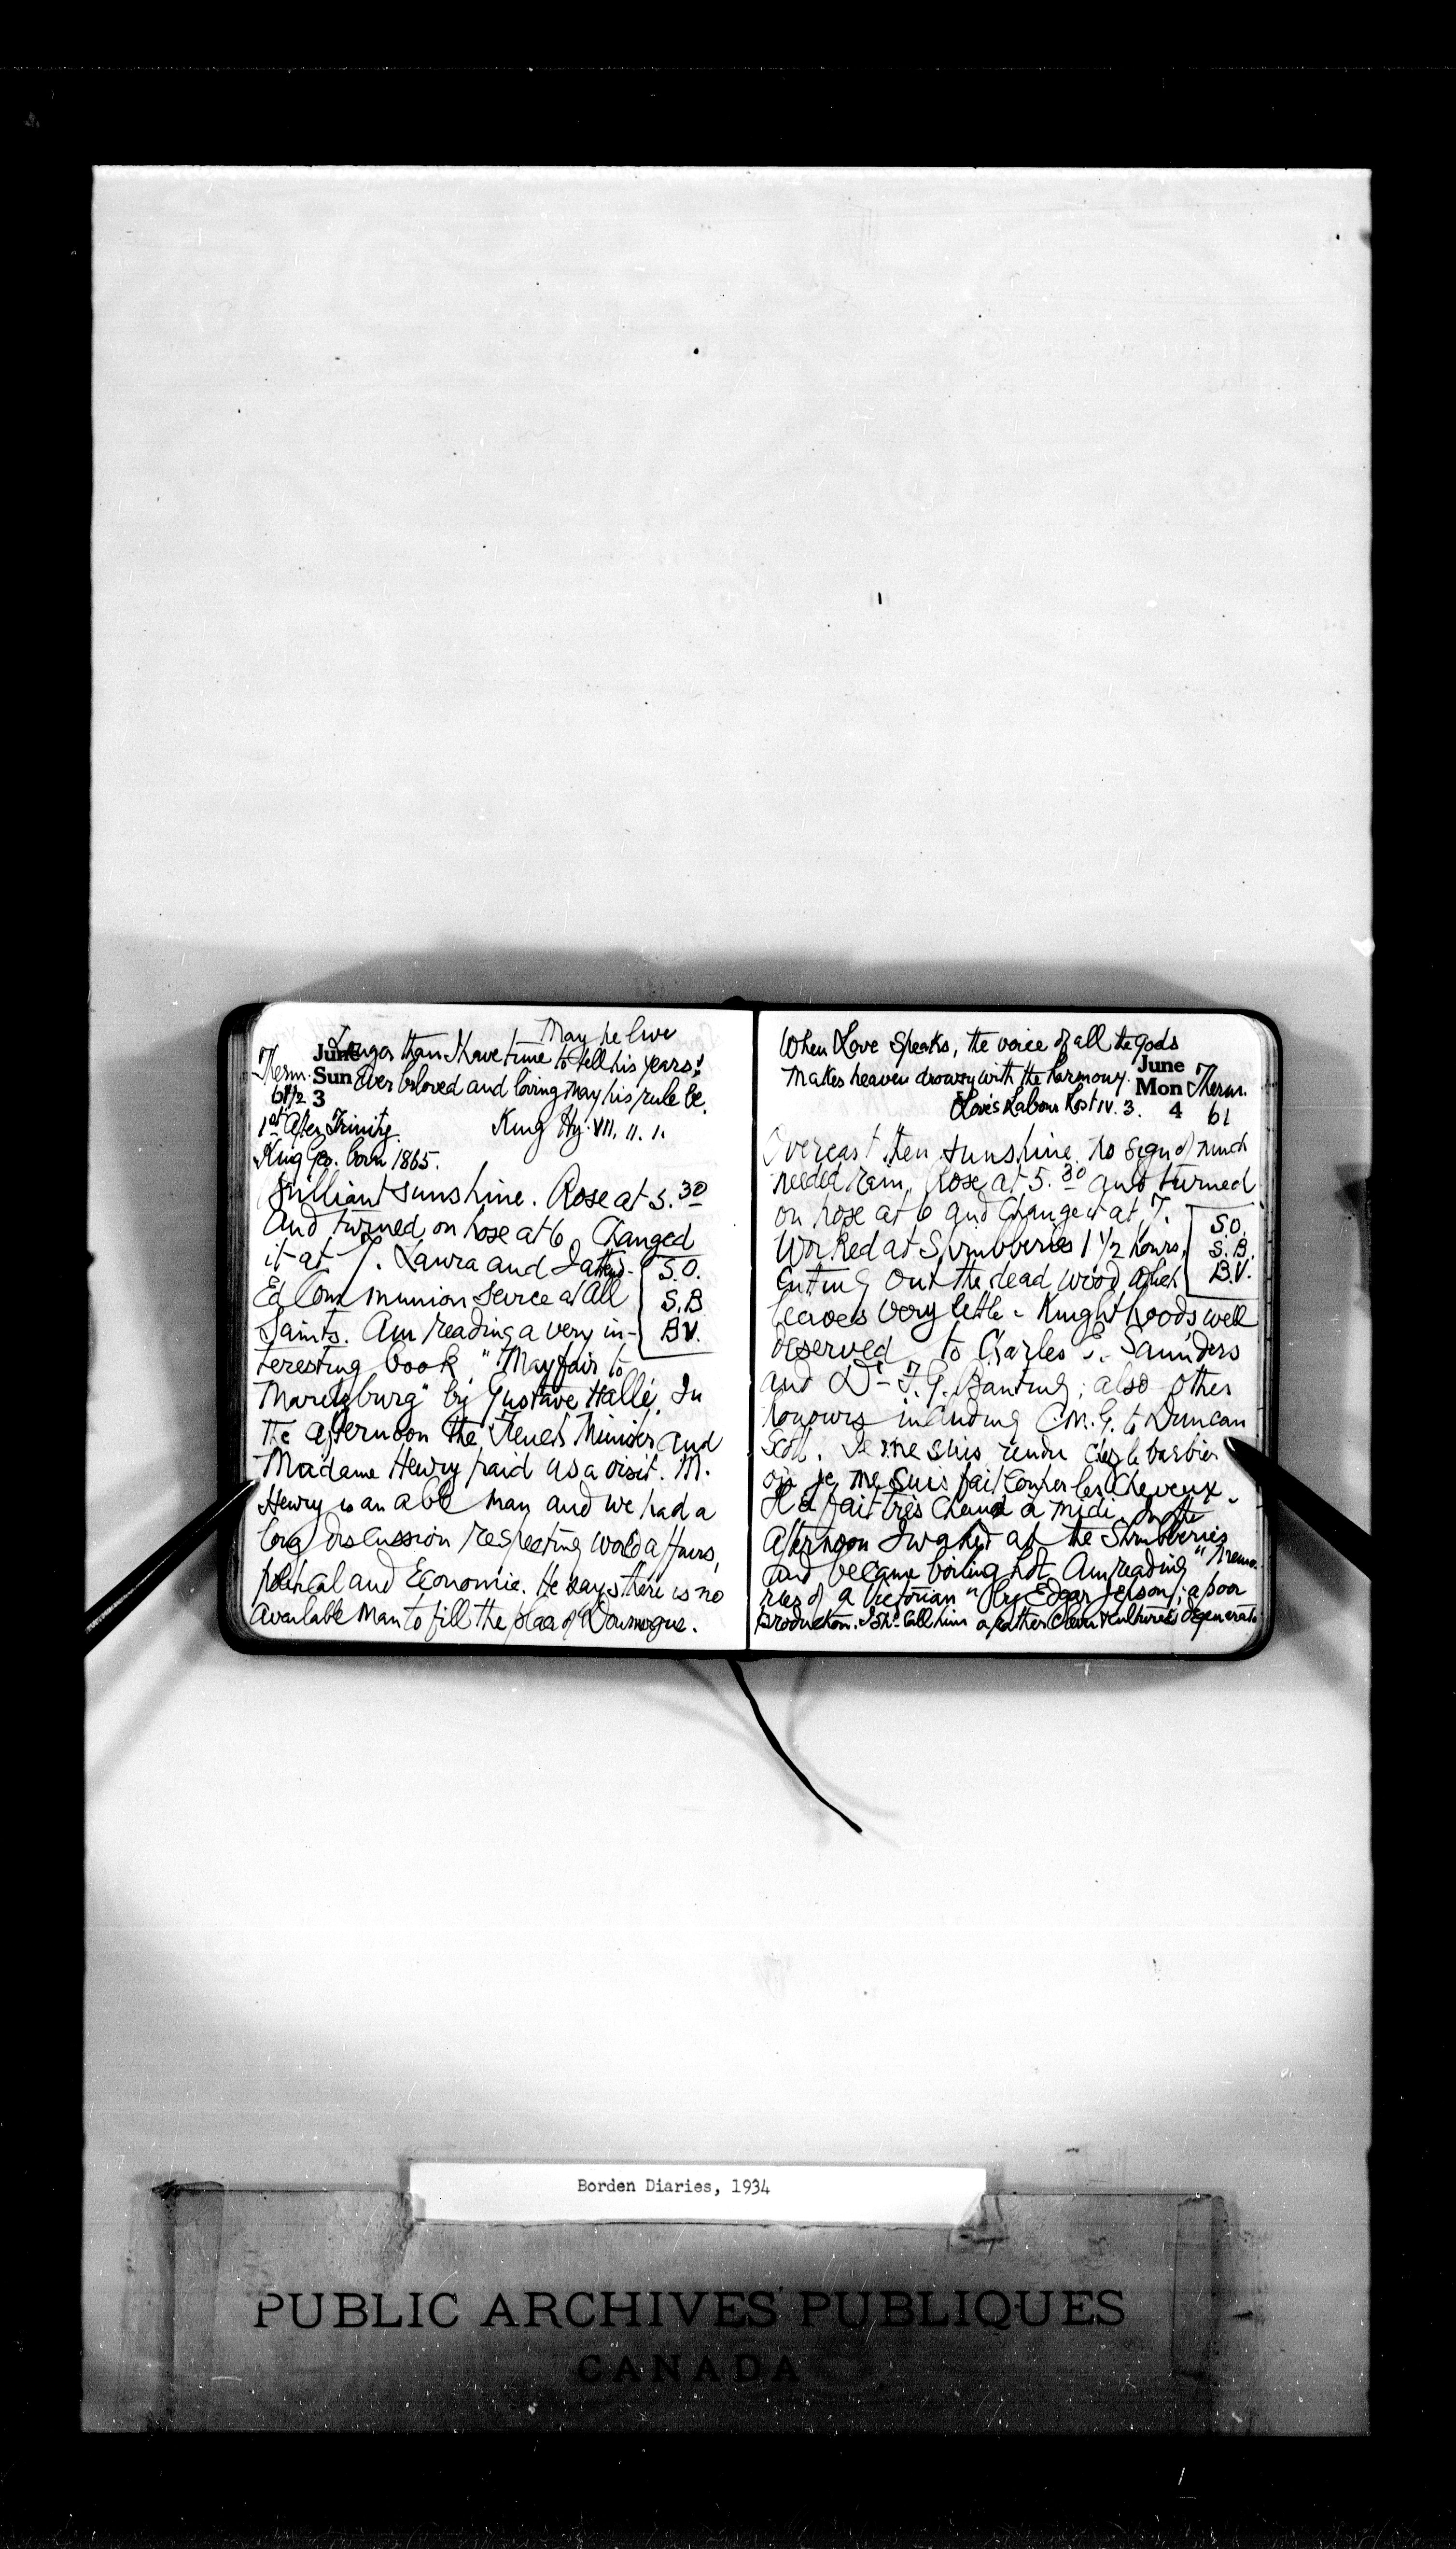 May he live
Longer than I have time to tell his years!
June
Therm. Sun Ever beloved and loving may his rule be.
61 1/2 3
1st After Trinity. King Hy. VIII. II. 1.
King Geo. born 1865.
Brilliant sunshine. Rose at 5.30
and turned on hose at 6. Changed
it at 7. Laura and I attend-
ed Communion Service at All
Saints. Am reading a very in-
S.O.
S.B
B.V.
teresting book "Mayfair to
Maritzburg" by Gustave Hallé. In
the afternoon the French Minister and
Madame Henry paid us a visit. M.
Henry is an able man and we had a
long discussion respecting world affairs,
political and Economic. He says there is no
available man to fill the place of Doumergue.
When Love Speaks, the voice of all the Gods
Makes heaven drowsy with the harmony.
Love's Labour Lost IV. 3.
June
Mon Therm.
4 61
Overcast then sunshine. No sign of much
needed rain. Rose at 5.30 and turned
on hose at 6 and changed at 7.
Worked at Shrubberies 1 1/2 hours,
cutting out the dead wood which
S.O.
S.B.
B.V.
leaves very little. Knighthoods well
deserved to Charles E. Saunders
and Dr. F.G. Banting; also other
honours including C.M.G. to Duncan
Scott. Je me suis rendu chez le barbier
où je me suis fait couper les cheveux.
Il a fait très chaud à midi. In the
afternoon I worked at the Shrubberies
and became boiling hot. Am reading "Memo-
ries of a Victorian" by Edgar Jepson; a poor
production. I shd. call him a rather clever & cultured degenerate
Borden Diaries, 1934
PUBLIC ARCHIVES PUBLIQUES
CANADA